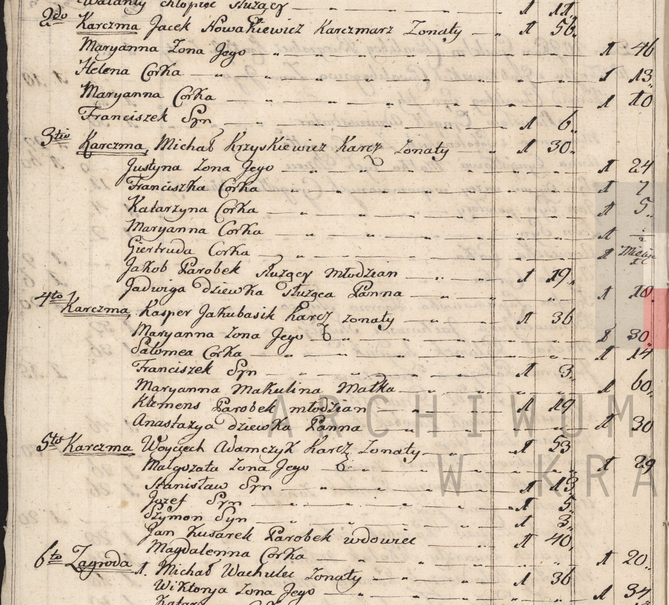 Walanty chłopiec służący 1 11.
2do Karczma Jacek Nowakiewicz Karczmarz Zonaty 1 56.
Maryanna Zona Jego 1 46
Helena Corka 1 13
Maryanna Corka 1 10
Franciszek Syn 1 6.
3tio Karczma, Michał Krzyskiewicz Karcz Zonaty 1 30.
Justyna Zona Jego 1 24
Franciszka Corka 1 7
Katarzyna Corka 1 5
Maryanna Corka 1
Giertruda Corka 1
Jakob Parobek służący młodzian 1 19.
Jadwiga dziewka służąca Panna 1 18.
4to Karczma, Kasper Jakubasik Karcz zonaty 1 36
Maryanna Zona Jego 1 30.
Salomea Corka 1 14
Franciszek Syn 1 3.
Maryanna Makulina Matka 1 60.
Klemens Parobek młodzian 1 19
Anastazya dziewka Panna 1 30
5to Karczma Woyciech Adamczyk Karcz Zonaty 1 53
Małgozata Zona Jego 1 29
Stanisław Syn 1 13
Jozef Syn 1 5.
Szymon Syn 1 3.
Jan Kusarek Parobek wdowiec 1 40.
Magdalenna Corka 1 20.
6to Zagroda 1. Michał Wachulec Zonaty 1 36
Wiktorya Zona Jego 1 34
ARCHIWUM
W KRA